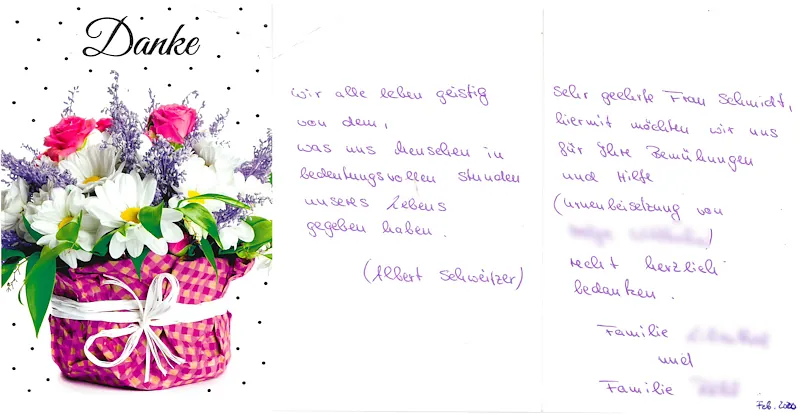 Danke
wir alle leben geistig
von dem,
was uns Menschen in
bedeutungsvollen Stunden
unseres Lebens
gegeben haben.
(Albert Schweitzer)
Sehr geehrte Frau Schmidt,
hiermit möchten wir uns
für Ihre Bemühungen
und Hilfe
(Urnenbeisetzung von
)
recht herzlich
bedanken.
Familie
und
Familie
Feb. 2020